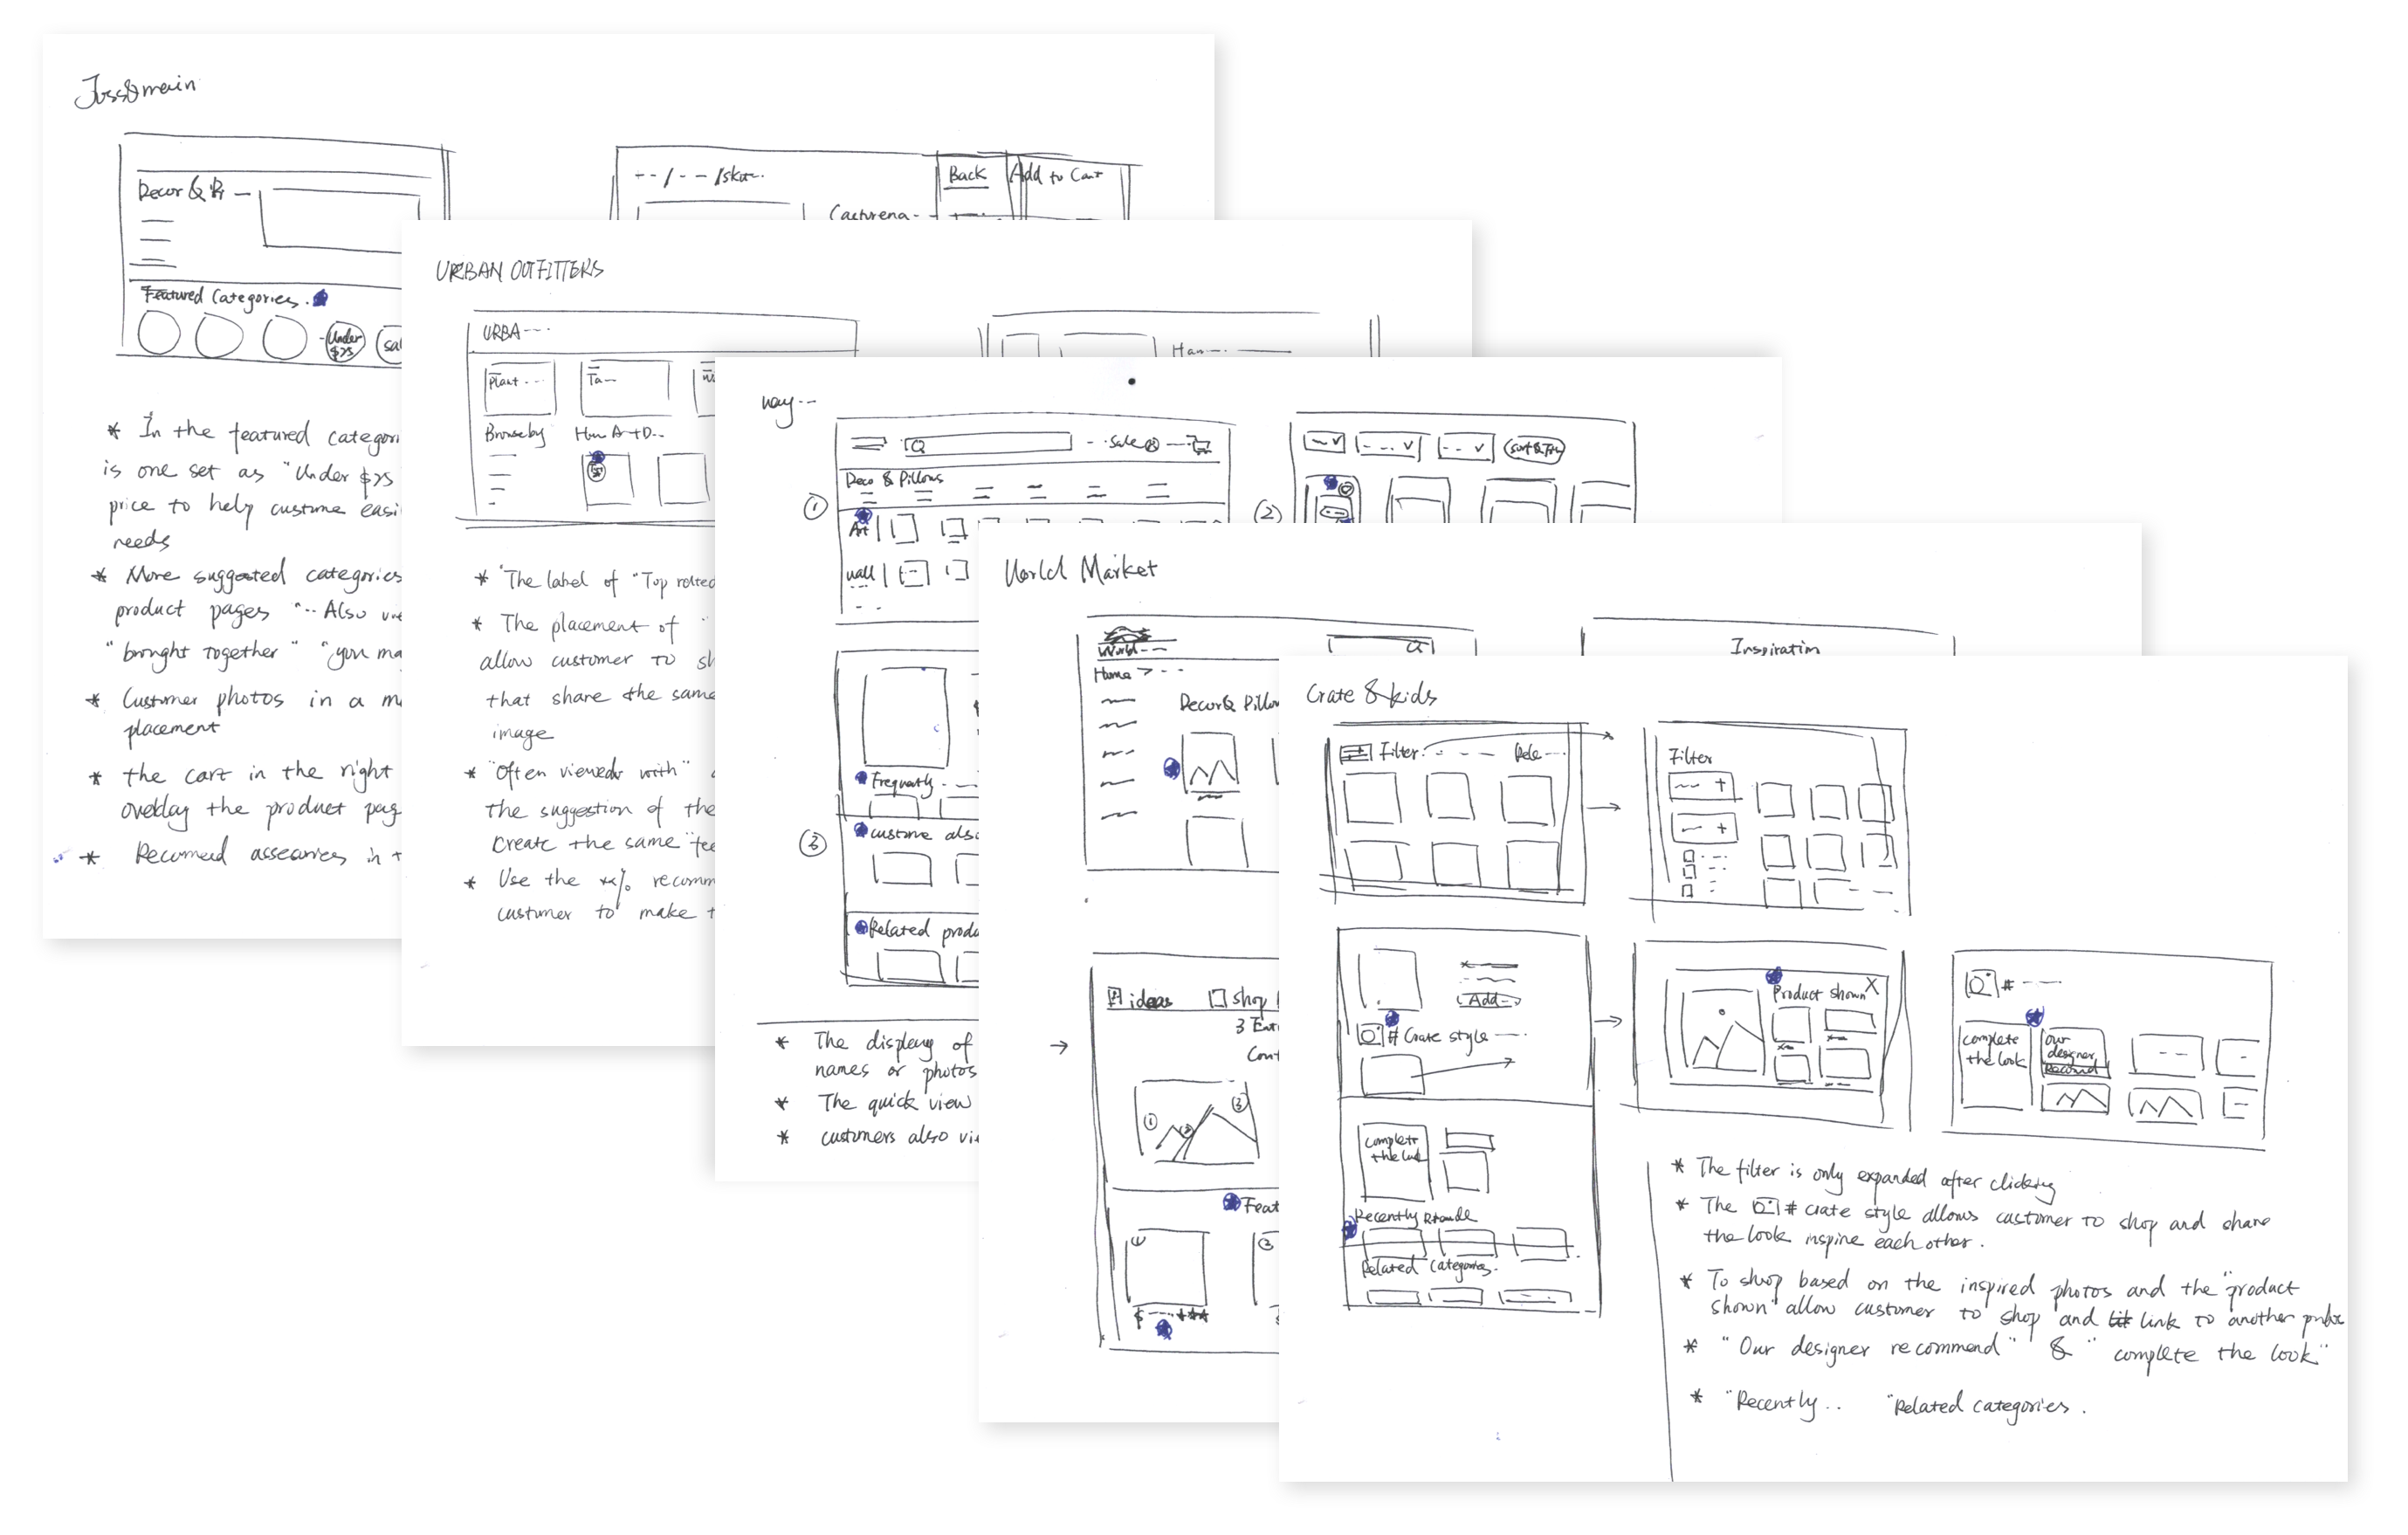 Joss&main
Decor & Pi
Featured Categories.
Under
$25
sal
--/--/skw..
Back
Add to Cart
* In the featured categori
is one set as "Under $25
price to help custome easi
needs
* More suggested categories
product pages "-- Also
"brought together" "you ma
* Customer photos in a m
placement
* the cart in the right
overlay the product pag
* Recomend assesories in t
URBAN OUTFITTERS
URBA----
Plant ---
Ta--
Browse by
Hom A+D..
Ham-. --
* The label of "Top rated
* The placement of "
allow customer to sh
that share the same
image
* "Often viewed with"
the suggestion of the
Create the same "fee
* Use the **% recomm
customer to make t
way--
①
Sale
Deco & Pillows
Art
wall
②
Sort & Filt
③
Frequently
custome also
Related produ
* The display of
names or photos
* The quick view
* customers also vi
World Market
World--
Home > ---
Decor & Pillow
Inspiration
ideas
shop
3 Eat
Cont
① ② ③
Feat
①
②
$ ---- ***
Crate & kids
Filter.
Rele---
Filter
Add--
# Crate style ----
complete
the look
Recently
Related Categories.
Product shown X
# ----
complete
the look
our
designer
Recomd
* The filter is only expanded after clicking
* The # crate style allows customer to shop and share
the look inspire each other.
* To shop based on the inspired photos and the "product
shown" allow customer to shop and link to another
* "Our designer recommend" & "complete the look"
* "Recently.. "Related categories.